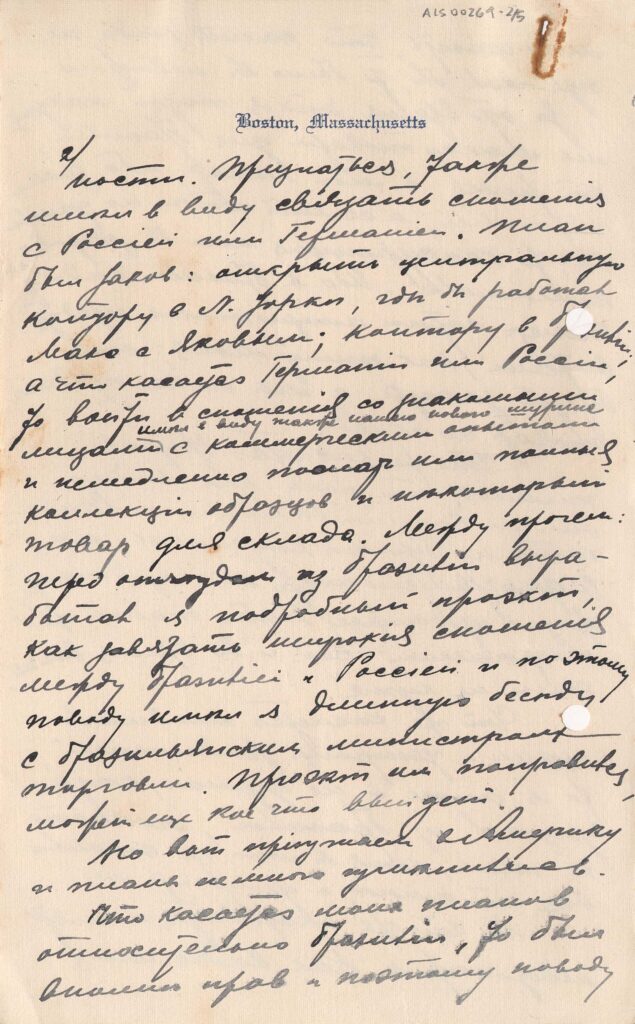 ALS 00269-2/5
Boston, Massachusetts
2/
ности. Признаться, также
имел в виду связать сношения
с Россiей или Германiей. План
был таков: открыть центральную
контору в Н. Іорке, где бы работал
Макс с Яковым; контору в Бразилiи;
а что касается Германiи или Россiи,
то войти в сношенiя со знакомыми
имел в виду также нашего нового шурина
лицами с коммерческим опытом
и немедленно послать им полныя
коллекцiи образцов и некоторый
товар для склада. Между прочем:
перед отъездом из Бразилiи выра-
ботал я подробный проэкт,
как завязать широкiя сношенiя
между Бразилiей и Россiей и по этому
поводу имел я длинную беседу
с бразильянским министром
торговли. Проэкт им понравился,
может еще кое что выйдет.
Но вот прiезжаем в Америку
и планы немного изменились.
Что касается моих планов
относительно Бразилiи, то был
вполне прав и поэтому поводу